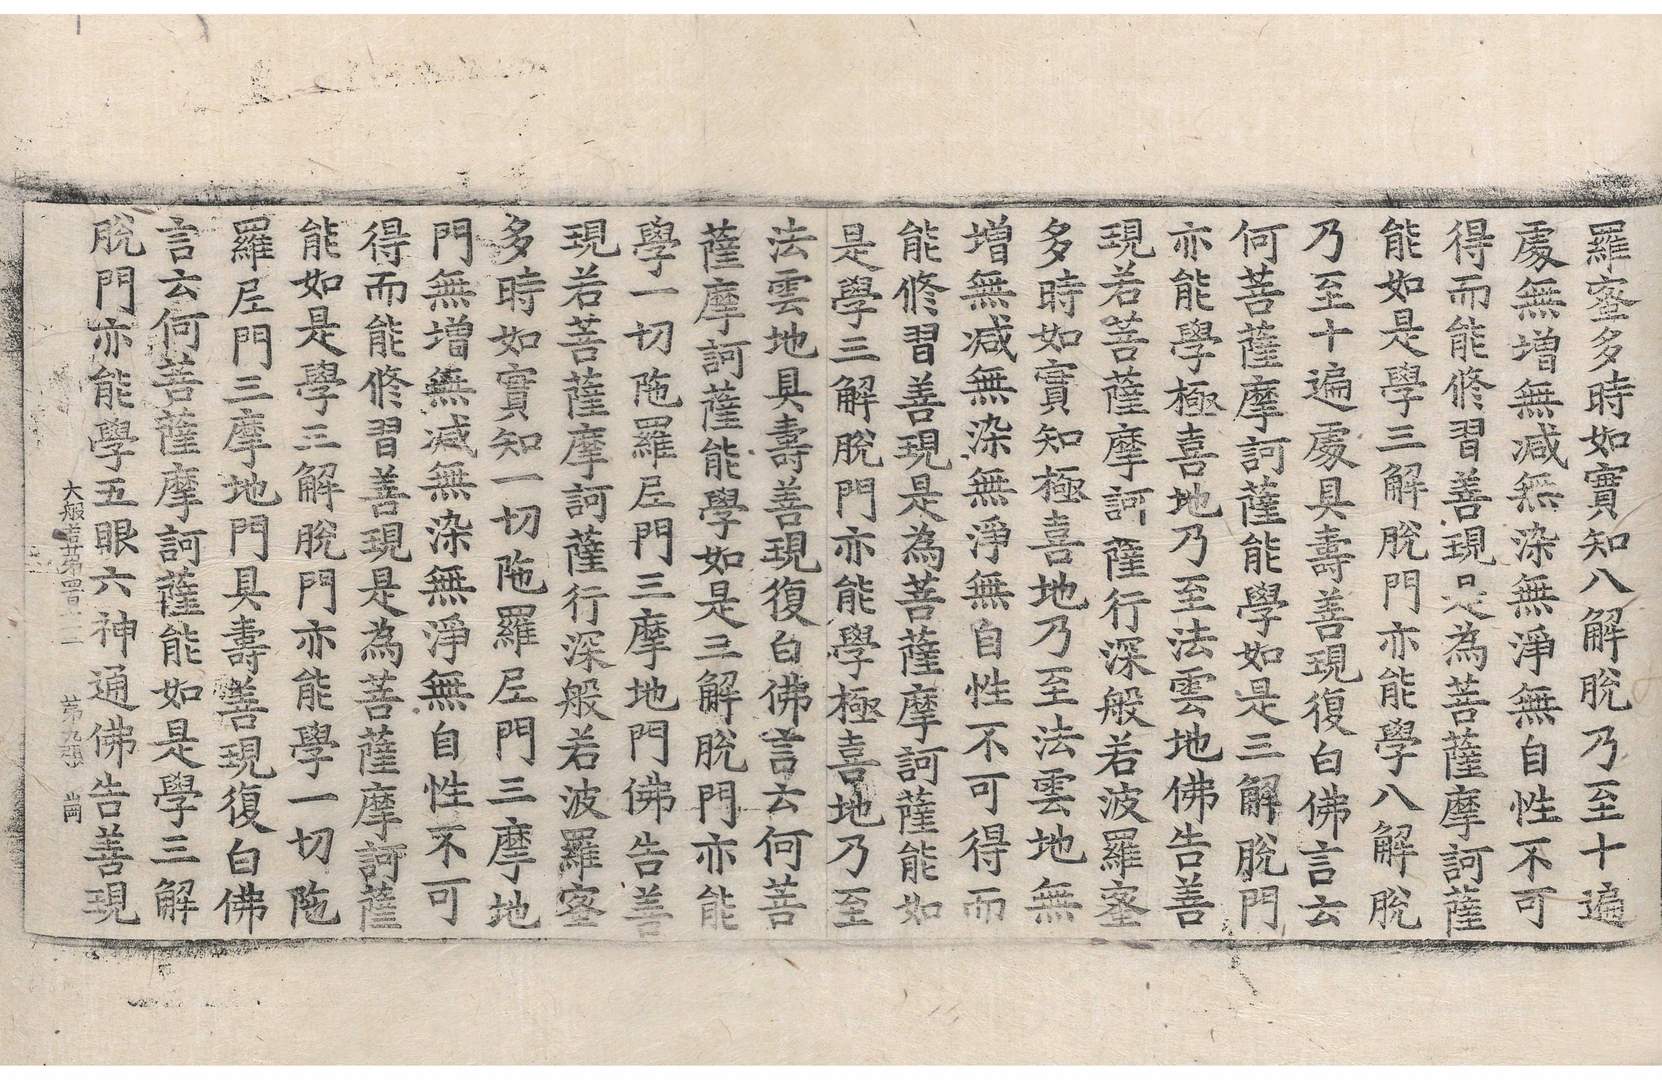 羅蜜多時如實知八解脫乃至十遍
處無增無減無染無淨無自性不可
得而能修習善現是為菩薩摩訶薩
能如是學三解脫門亦能學八解脫
乃至十遍處具壽善現復白佛言云
何菩薩摩訶薩能學如是三解脫門
亦能學極喜地乃至法雲地佛告善
現若菩薩摩訶薩行深般若波羅蜜
多時如實知極喜地乃至法雲地無
增無減無染無淨無自性不可得而
能修習善現是為菩薩摩訶薩能如
是學三解脫門亦能學極喜地乃至
法雲地具壽善現復白佛言云何菩
薩摩訶薩能學如是三解脫門亦能
學一切陁羅尼門三摩地門佛告善
現若菩薩摩訶薩行深般若波羅蜜
多時如實知一切陁羅尼門三摩地
門無增無減無染無淨無自性不可
得而能修習善現是為菩薩摩訶薩
能如是學三解脫門亦能學一切陁
羅尼門三摩地門具壽善現復白佛
言云何菩薩摩訶薩能如是學三解
脫門亦能學五眼六神通佛告善現
大般若第四百 二 第九張 崗